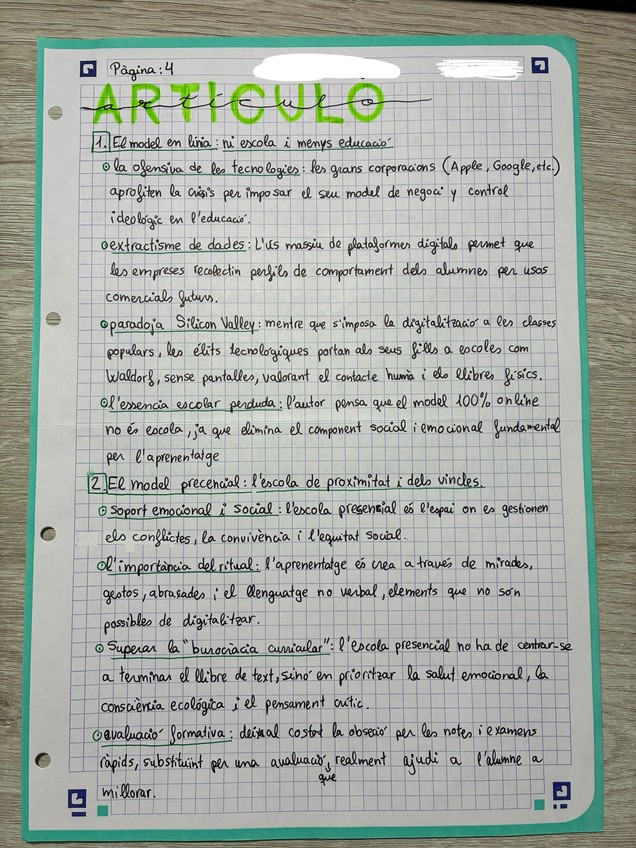 Pàgina: 4
ARTICULO
articulo
1. El model en línia: ni escola i menys educació
la ofensiva de les tecnologies: les grans corporacions (Apple, Google, etc.)
aprofiten la crisis per imposar el seu model de negoci y control
ideologic en l'educació.
extractisme de dades: L'us massiu de plataformes digitals permet que
les empreses recolectin perfils de comportament dels alumnes per usos
comercials futurs.
paradoja Silicon Valley: mentre que s'imposa la digitalització a les classes
populars, les élits tecnologiques portan als seus fills a escoles com
Waldorf, sense pantalles, valorant el contacte humà i els llibres físics.
l'essencia escolar perduda: l'autor pensa que el model 100% online
no és escola, ja que elimina el component social i emocional fundamental
per l'aprenentatge
2. El model precencial: l'escola de proximitat i dels vincles.
soport emocional i social: l'escola presensial és l'espai on es gestionen
els conflictes, la convivència i l'equitat social.
l'importància del ritual: l'aprenentatge es crea a través de mirades,
gestos, abrasades i el llenguatge no verbal, elements que no són
possibles de digitalitzar.
Superar la "burocràcia curricular": l'escola presencial no ha de centrar-se
a terminar el llibre de text, sinó en prioritzar la salut emocional, la
consciència ecològica i el pensament crític.
avaluació formativa: deixal costat la obseció per les notes i examens
ràpids, substituint per una avaluació, realment ajudi a l'alumne a
que
millorar.